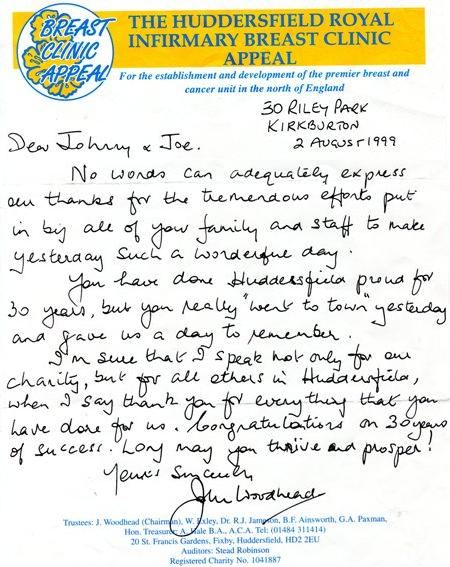 BREAST
CLINIC
APPEAL
THE HUDDERSFIELD ROYAL
INFIRMARY BREAST CLINIC
APPEAL
For the establishment and development of the premier breast and
cancer unit in the north of England
30 RILEY PARK
KIRKBURTON
2 AUGUST 1999
Dear Johnny & Joe.
No words can adequately express
our thanks for the tremendous efforts put
in by all of your family and staff to make
yesterday such a wonderful day.
You have done Huddersfield proud for
30 years, but you really "went to town" yesterday
and gave us a day to remember.
I'm sure that I speak not only for our
charity, but for all others in Huddersfield,
when I say thank you for everything that you
have done for us. Congratulations on 30 years
of success. Long may you thrive and prosper!
Yours Sincerely
John Woodhead
Trustees: J. Woodhead (Chairman), W. Exley, Dr. R.J. Jameson, B.F. Ainsworth, G.A. Paxman,
Hon. Treasurer A. Hale B.A., A.C.A. Tel: (01484 311414)
20 St. Francis Gardens, Fixby, Huddersfield, HD2 2EU
Auditors: Stead Robinson
Registered Charity No. 1041887